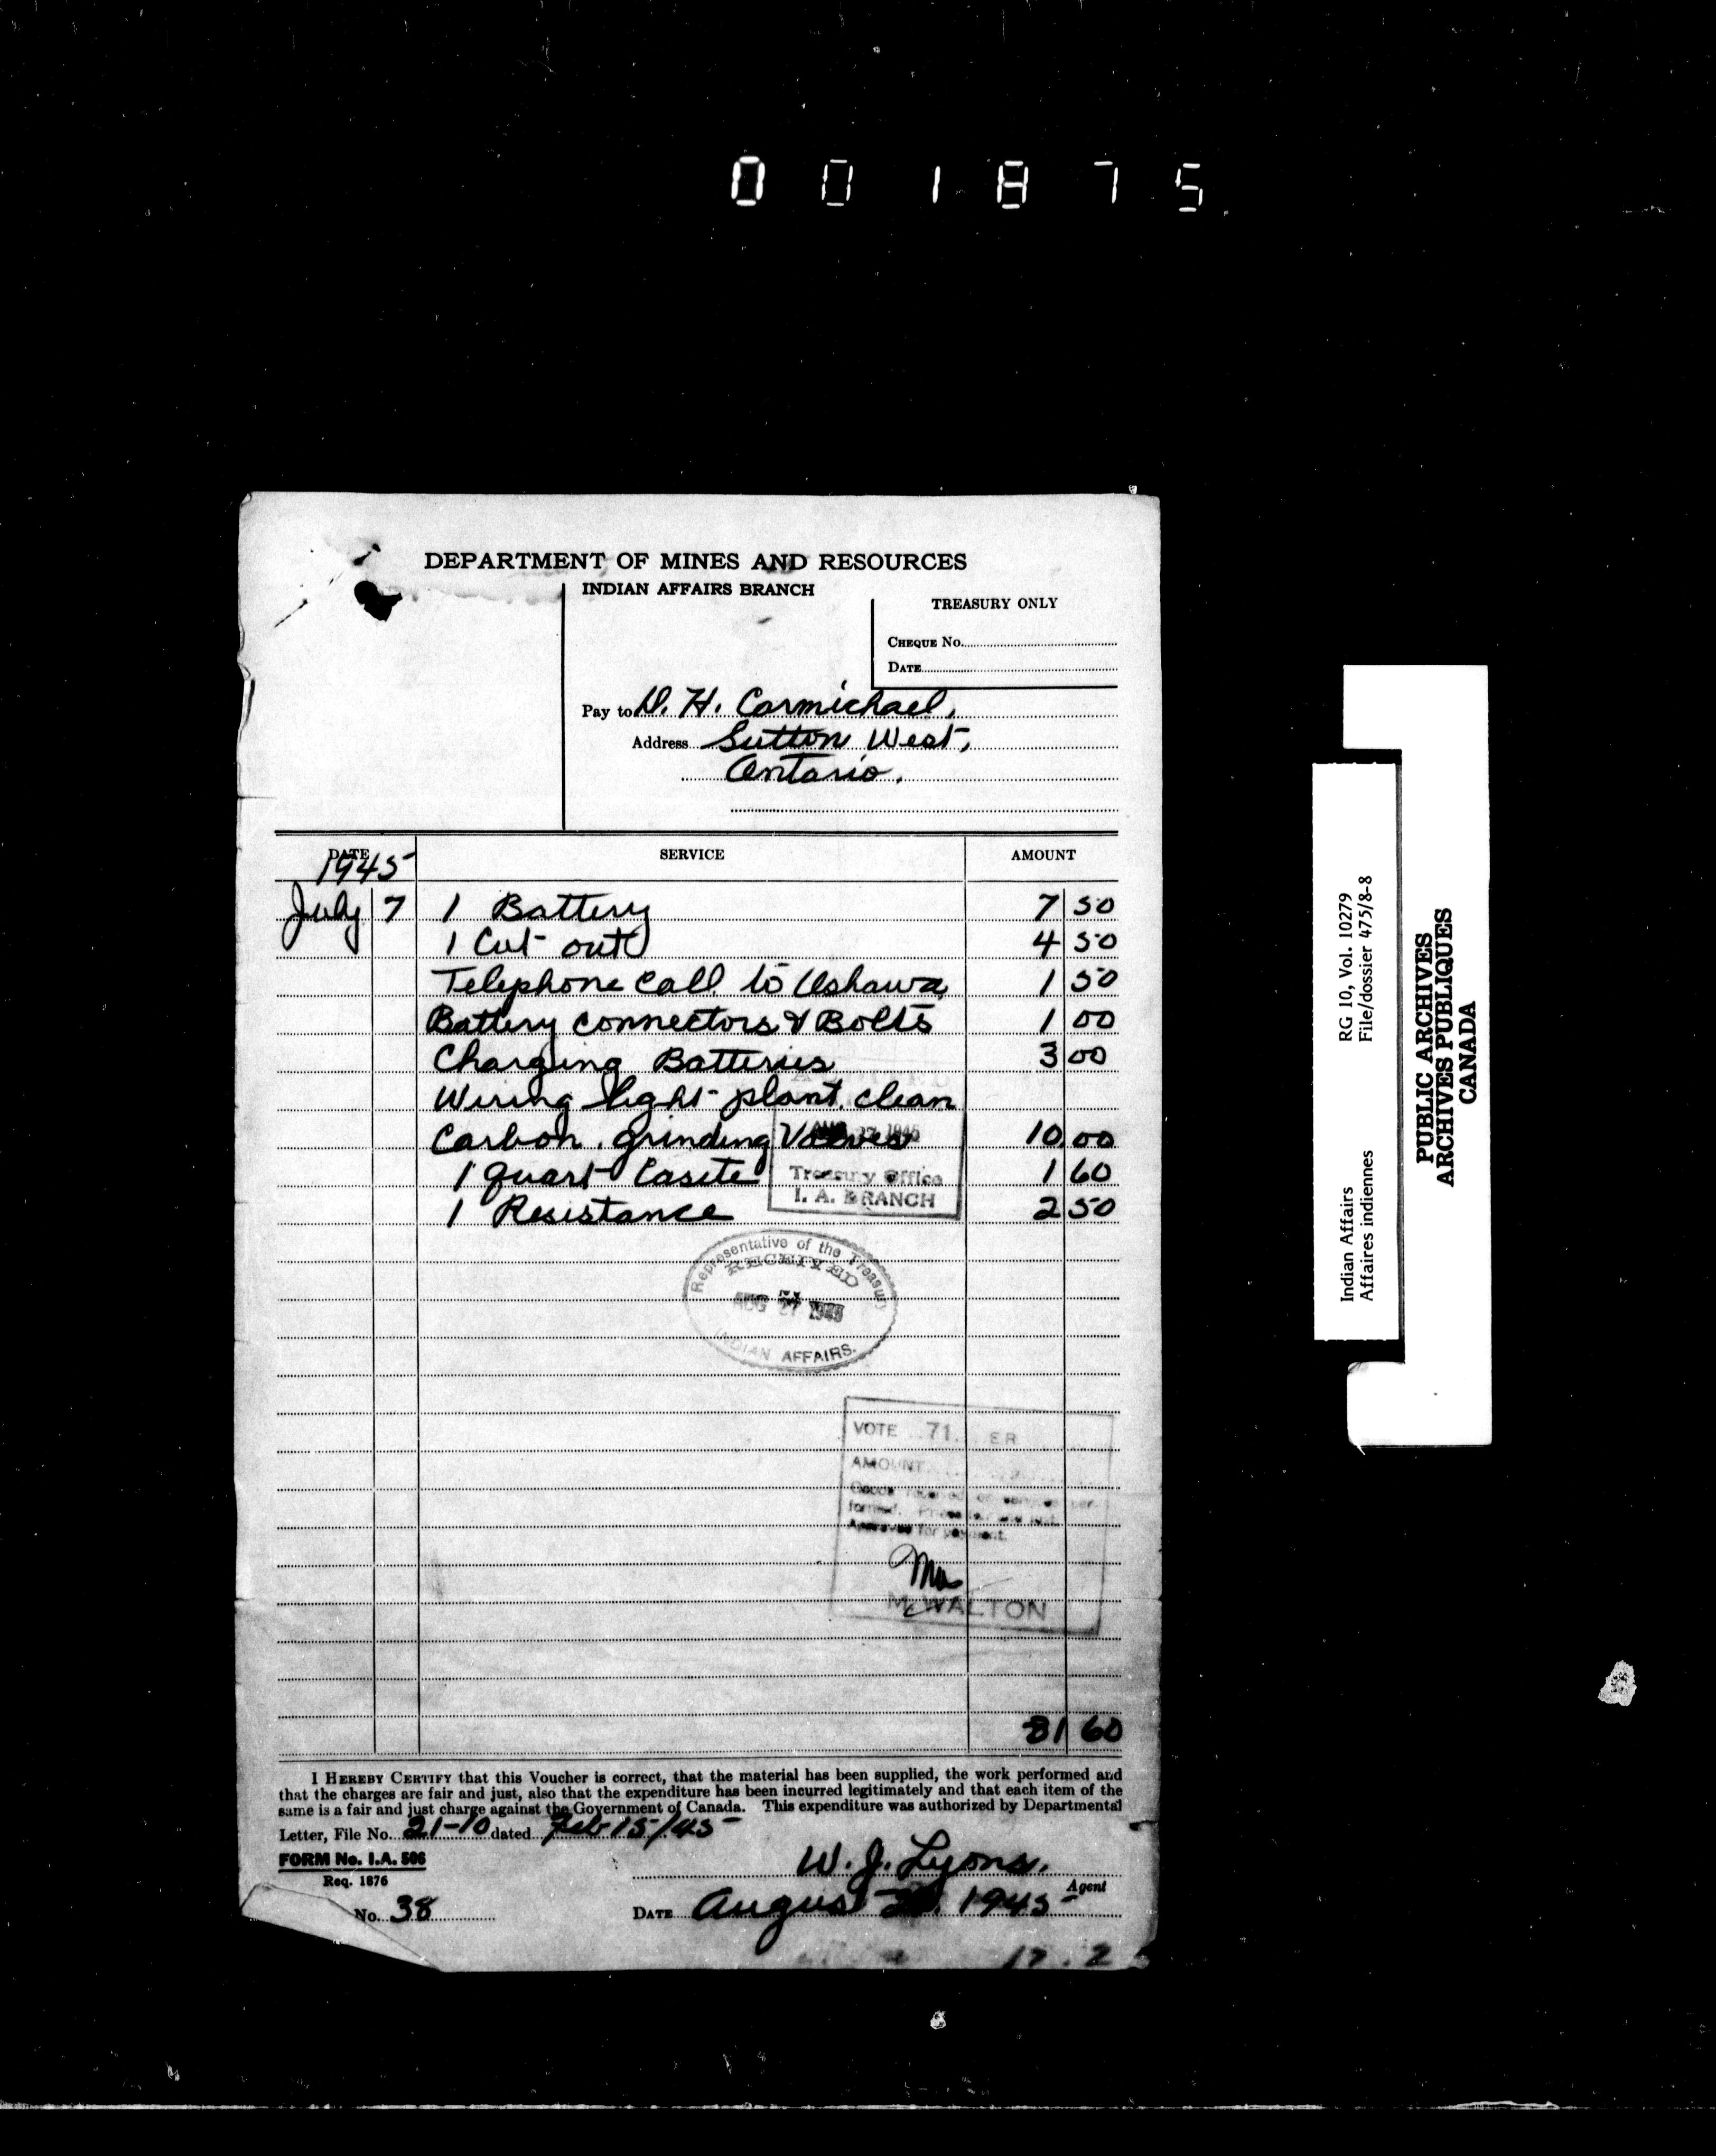 001875
DEPARTMENT OF MINES AND RESOURCES
INDIAN AFFAIRS BRANCH
TREASURY ONLY
CHEQUE No.
DATE
Pay to D. H. Carmichael,
Address Sutton West,
Ontario.
DATE SERVICE AMOUNT
1945
July 7 1 Battery 7 50
1 Cut out 4 50
Telephone Call to Oshawa 1 50
Battery connectors & Bolts 1 00
Charging Batteries 3 00
Wiring light plant. clean
Carbon. grinding Valves 10 00
1 quart Casite 1 60
1 Resistance 2 50
AUG 27 1945
Treasury Office
I. A. BRANCH
Representative of the Treasury
RECEIVED
AUG 27 1945
INDIAN AFFAIRS.
VOTE 71 ER
AMOUNT
Goods received or services per-
formed. Prices fair and just.
Approved for payment.
M. WALTON
31 60
I HEREBY CERTIFY that this Voucher is correct, that the material has been supplied, the work performed and
that the charges are fair and just, also that the expenditure has been incurred legitimately and that each item of the
same is a fair and just charge against the Government of Canada. This expenditure was authorized by Departmental
Letter, File No. 21-10 dated Feb 15/45
FORM No. I.A. 506
Req. 1876
W. J. Lyons.
Agent
No. 38
DATE August 1945
17. 2
Indian Affairs RG 10, Vol. 10279
Affaires indiennes File/dossier 475/8-8
PUBLIC ARCHIVES
ARCHIVES PUBLIQUES
CANADA